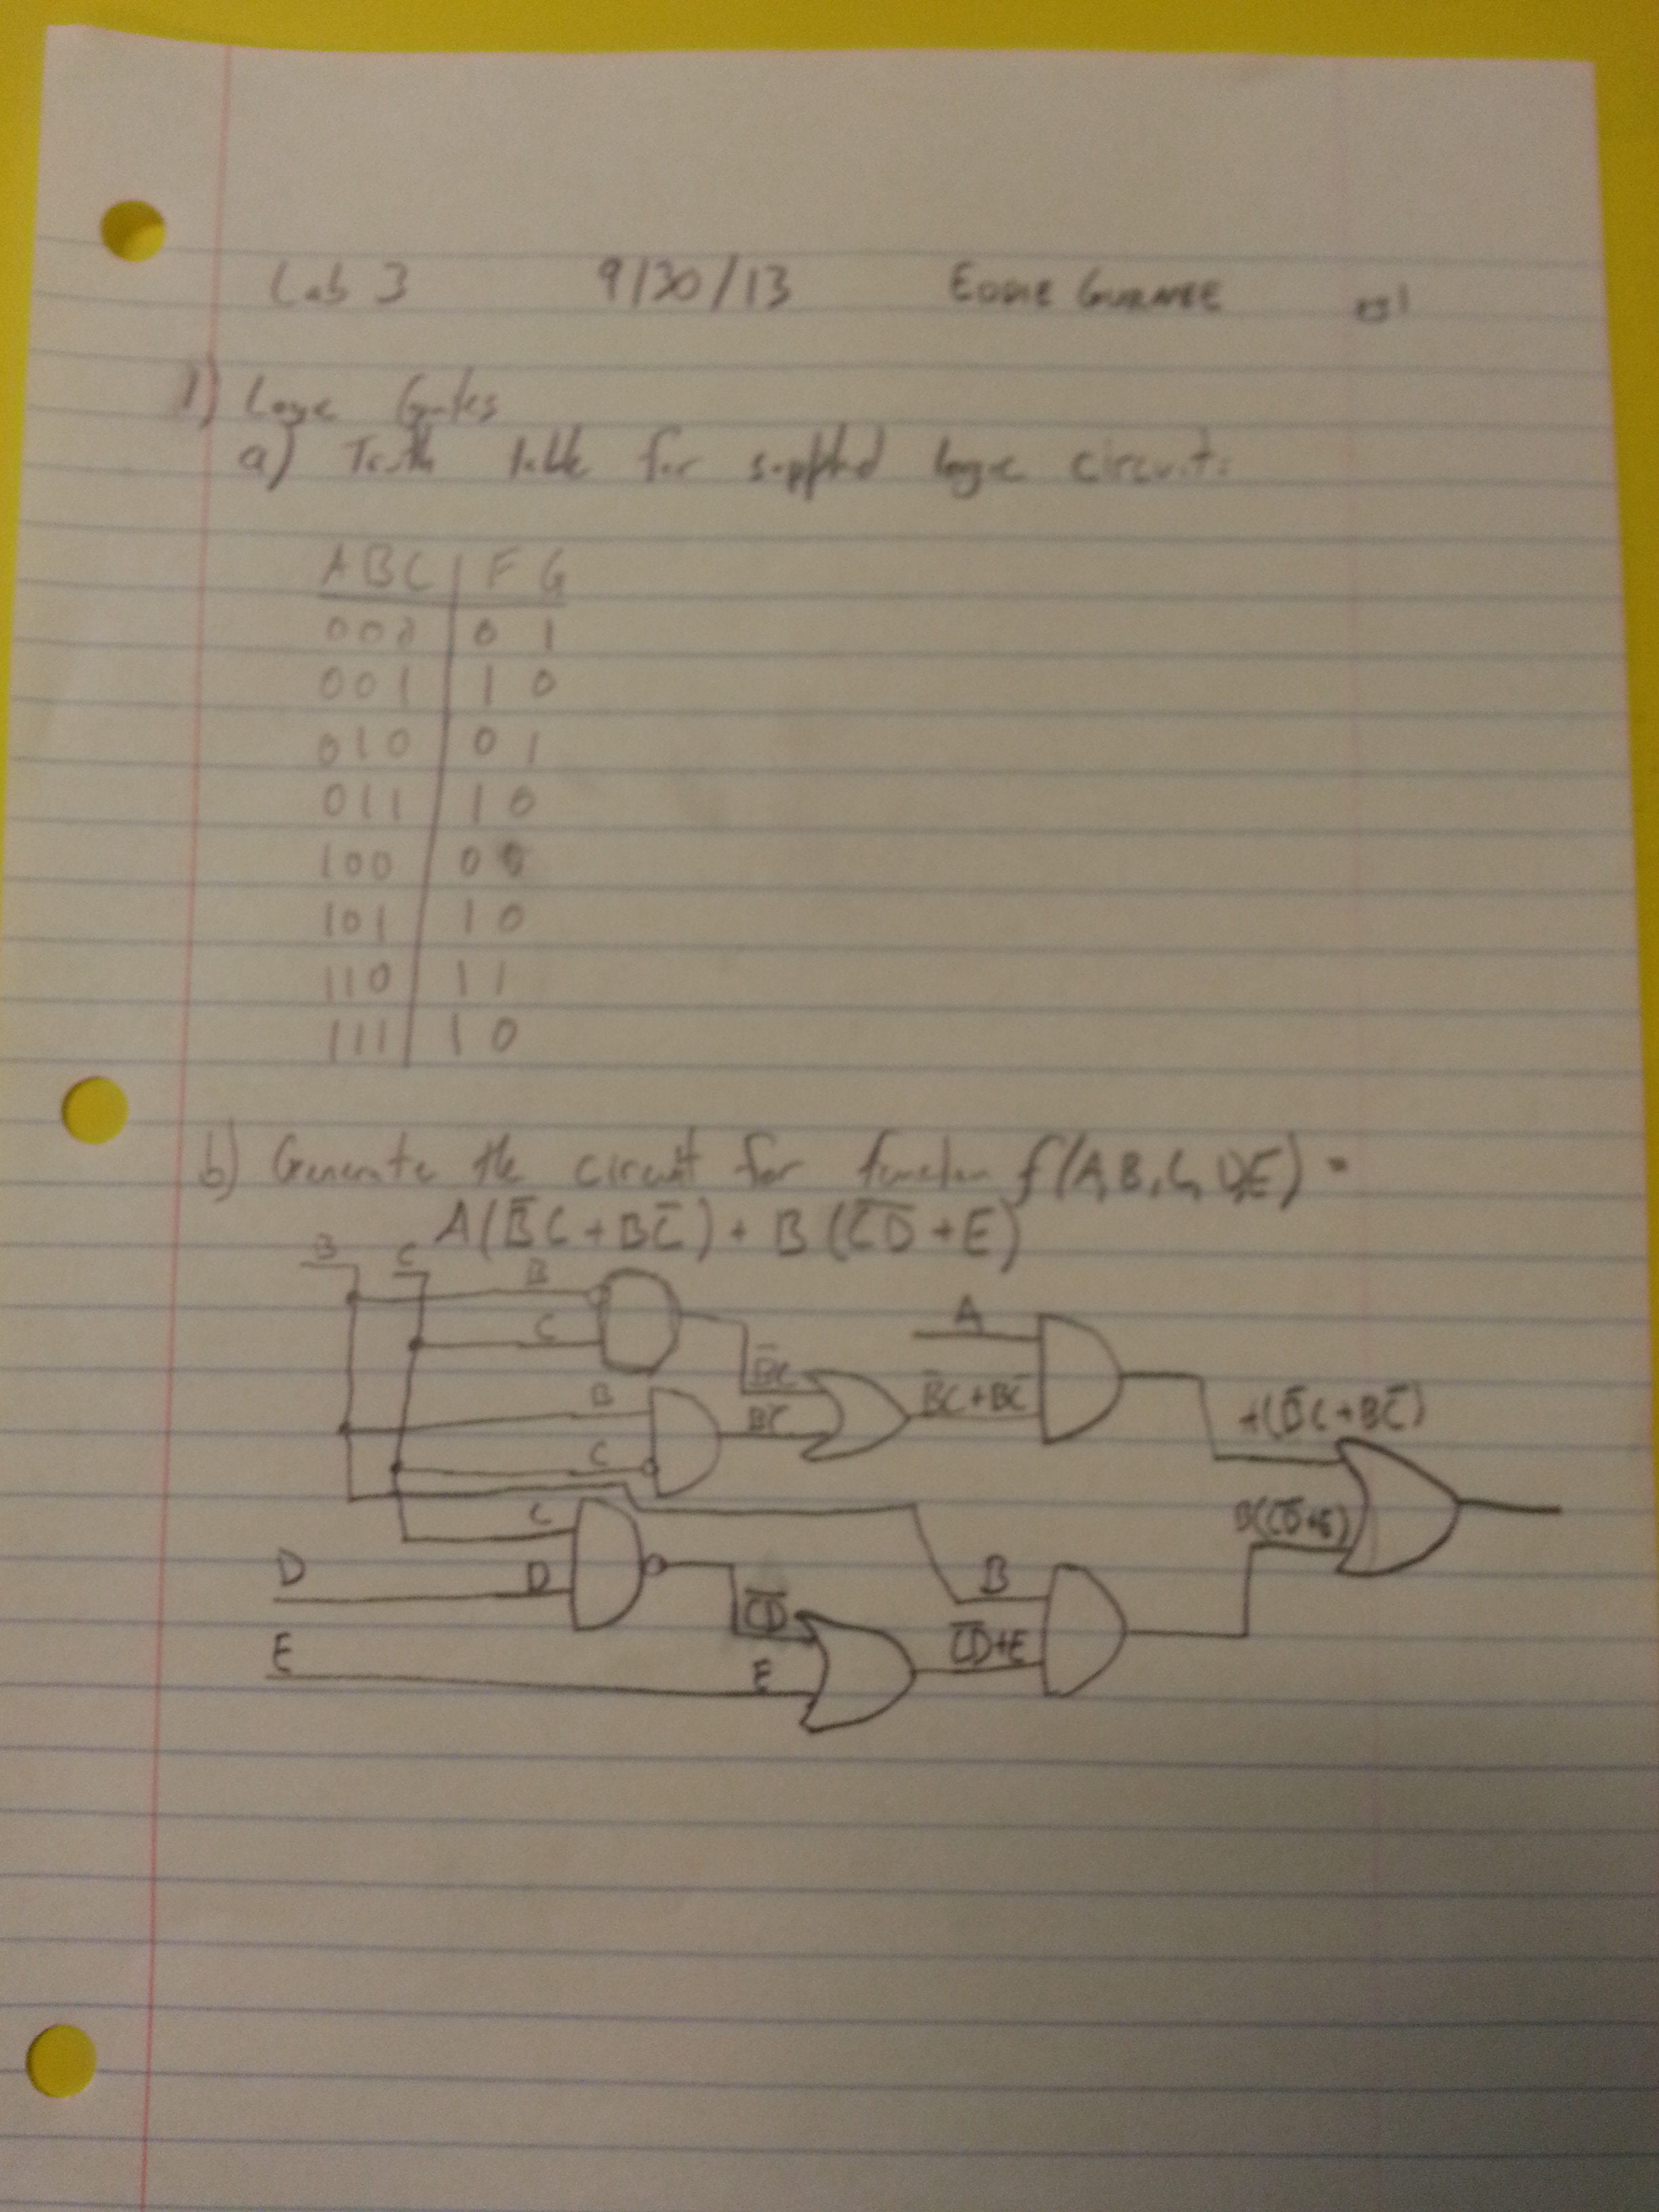 Lab 3 9/30/13 EDDIE GURNEE pg 1
1) Logic Gates
a) Truth table for supplied logic circuit:
A B C | F G
0 0 0 | 0 1
0 0 1 | 1 0
0 1 0 | 0 1
0 1 1 | 1 0
1 0 0 | 0 0
1 0 1 | 1 0
1 1 0 | 1 1
1 1 1 | 1 0
b) Generate the circuit for function f(A,B,C,D,E) =
A(B̅C + BC̅) + B(C̅D̅ + E)
B C B
C
A
B̅C
B BC̅ B̅C+BC̅
A(B̅C+BC̅)
C
C
B(C̅D̅+E)
D D B
C̅D̅
C̅D̅+E
E E